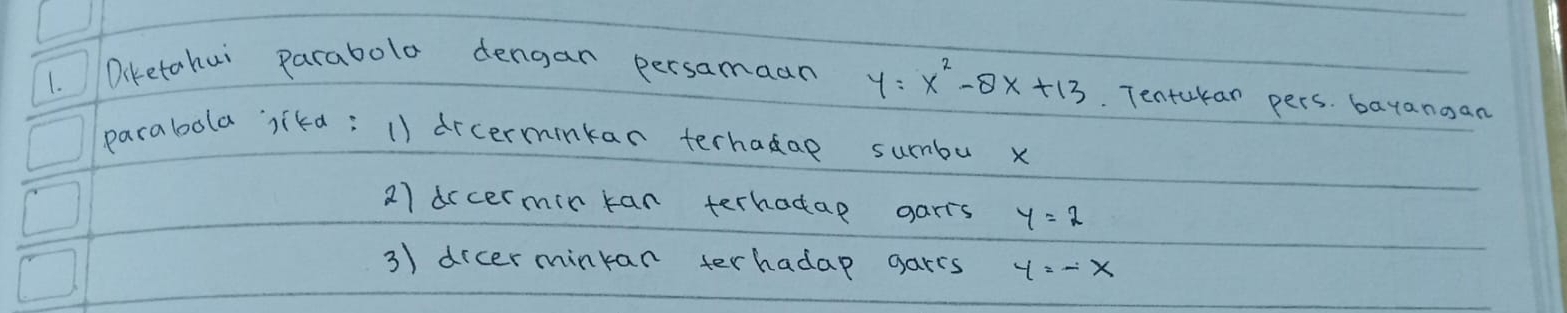 1. Diketahui parabola dengan persamaan y = x² - 8x + 13. Tentukan pers. bayangan
parabola jika : 1) dicerminkan terhadap sumbu x
2) dicerminkan terhadap garis y = 2
3) dicerminkan terhadap garis y = -x